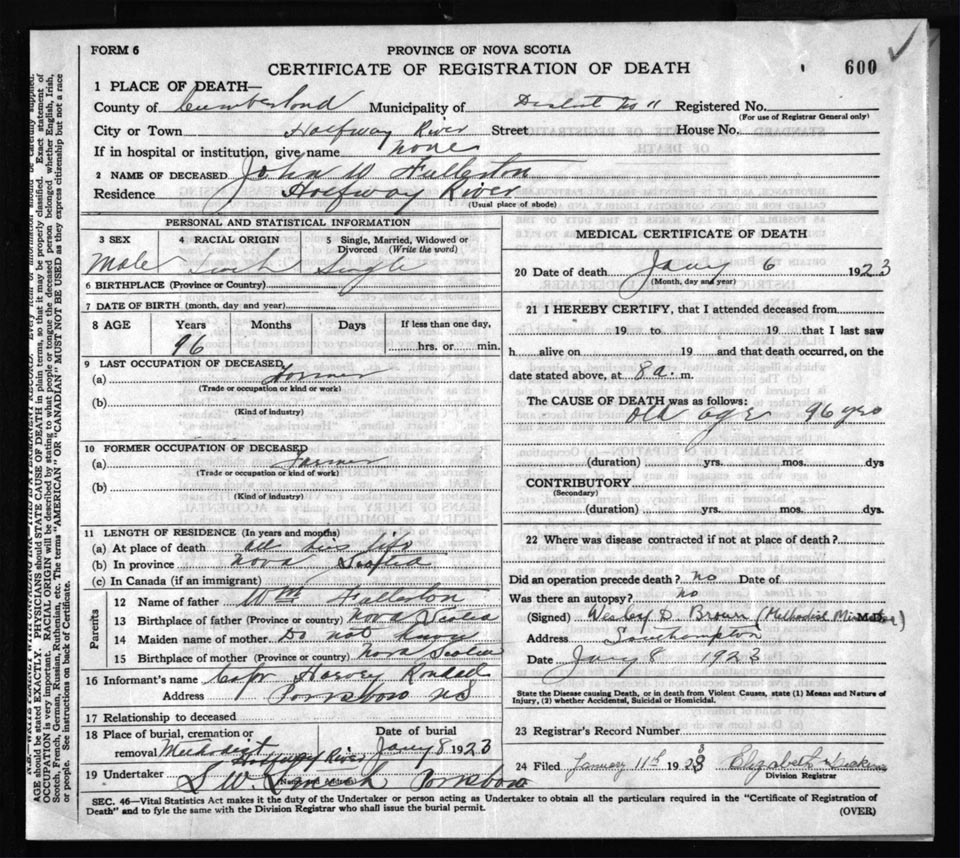 FORM 6
PROVINCE OF NOVA SCOTIA
CERTIFICATE OF REGISTRATION OF DEATH
600
1 PLACE OF DEATH—
County of Cumberland Municipality of District No 11 Registered No.
(For use of Registrar General only)
City or Town Halfway River Street House No.
If in hospital or institution, give name none
2 NAME OF DECEASED John W Fullerton
Residence Halfway River
(Usual place of abode)
PERSONAL AND STATISTICAL INFORMATION
3 SEX 4 RACIAL ORIGIN 5 Single, Married, Widowed or Divorced (Write the word)
Male Single
6 BIRTHPLACE (Province or Country)
7 DATE OF BIRTH (month, day and year)
8 AGE Years Months Days If less than one day,
96 hrs. or min.
9 LAST OCCUPATION OF DECEASED
(a) Farmer
(Trade or occupation or kind or work)
(b)
(Kind of industry)
10 FORMER OCCUPATION OF DECEASED
(a) Farmer
(Trade or occupation or kind of work)
(b)
(Kind of industry)
11 LENGTH OF RESIDENCE (In years and months)
(a) At place of death all his life
(b) In province Nova Scotia
(c) In Canada (if an immigrant)
Parents
12 Name of father Wm Fullerton
13 Birthplace of father (Province or country) Nova Scotia
14 Maiden name of mother Do not know
15 Birthplace of mother (Province or country) Nova Scotia
16 Informant's name Capt Harvey Randall
Address Parrsboro NS
17 Relationship to deceased
18 Place of burial, cremation or removal Methodist Halfway River
Date of burial Jany 8 1923
19 Undertaker S. W. Parrsboro
MEDICAL CERTIFICATE OF DEATH
20 Date of death Jany 6 1923
(Month, day and year)
21 I HEREBY CERTIFY, that I attended deceased from
19 to 19 that I last saw
h alive on 19 and that death occurred, on the
date stated above, at 8 a. m.
The CAUSE OF DEATH was as follows:
old age 96 yrs
(duration) yrs. mos. dys
CONTRIBUTORY
(Secondary)
(duration) yrs. mos. dys.
22 Where was disease contracted if not at place of death?
Did an operation precede death? no Date of
Was there an autopsy? no
(Signed) Wesley D Brown (Methodist Minister) M.D.
Address Southampton
Date Jany 8 1923
State the Disease causing Death, or in death from Violent Causes, state (1) Means and Nature of
Injury, (2) whether Accidental, Suicidal or Homicidal.
23 Registrar's Record Number
24 Filed January 11th 1923 Elizabeth
Division Registrar
SEC. 46—Vital Statistics Act makes it the duty of the Undertaker or person acting as Undertaker to obtain all the particulars required in the "Certificate of Registration of
Death" and to fyle the same with the Division Registrar who shall issue the burial permit.
(OVER)
AGE should be stated EXACTLY. PHYSICIANS should STATE CAUSE OF DEATH in plain terms, so that it may be properly classified. Exact statement of
OCCUPATION is very important. RACIAL ORIGIN will be described by stating to what people or tongue the deceased person belonged whether English, Irish,
Scotch, French, German, Russian, Ruthenian, etc. The terms "AMERICAN" OR "CANADIAN" MUST NOT BE USED as they express citizenship but not a race
or people. See instructions on back of Certificate.